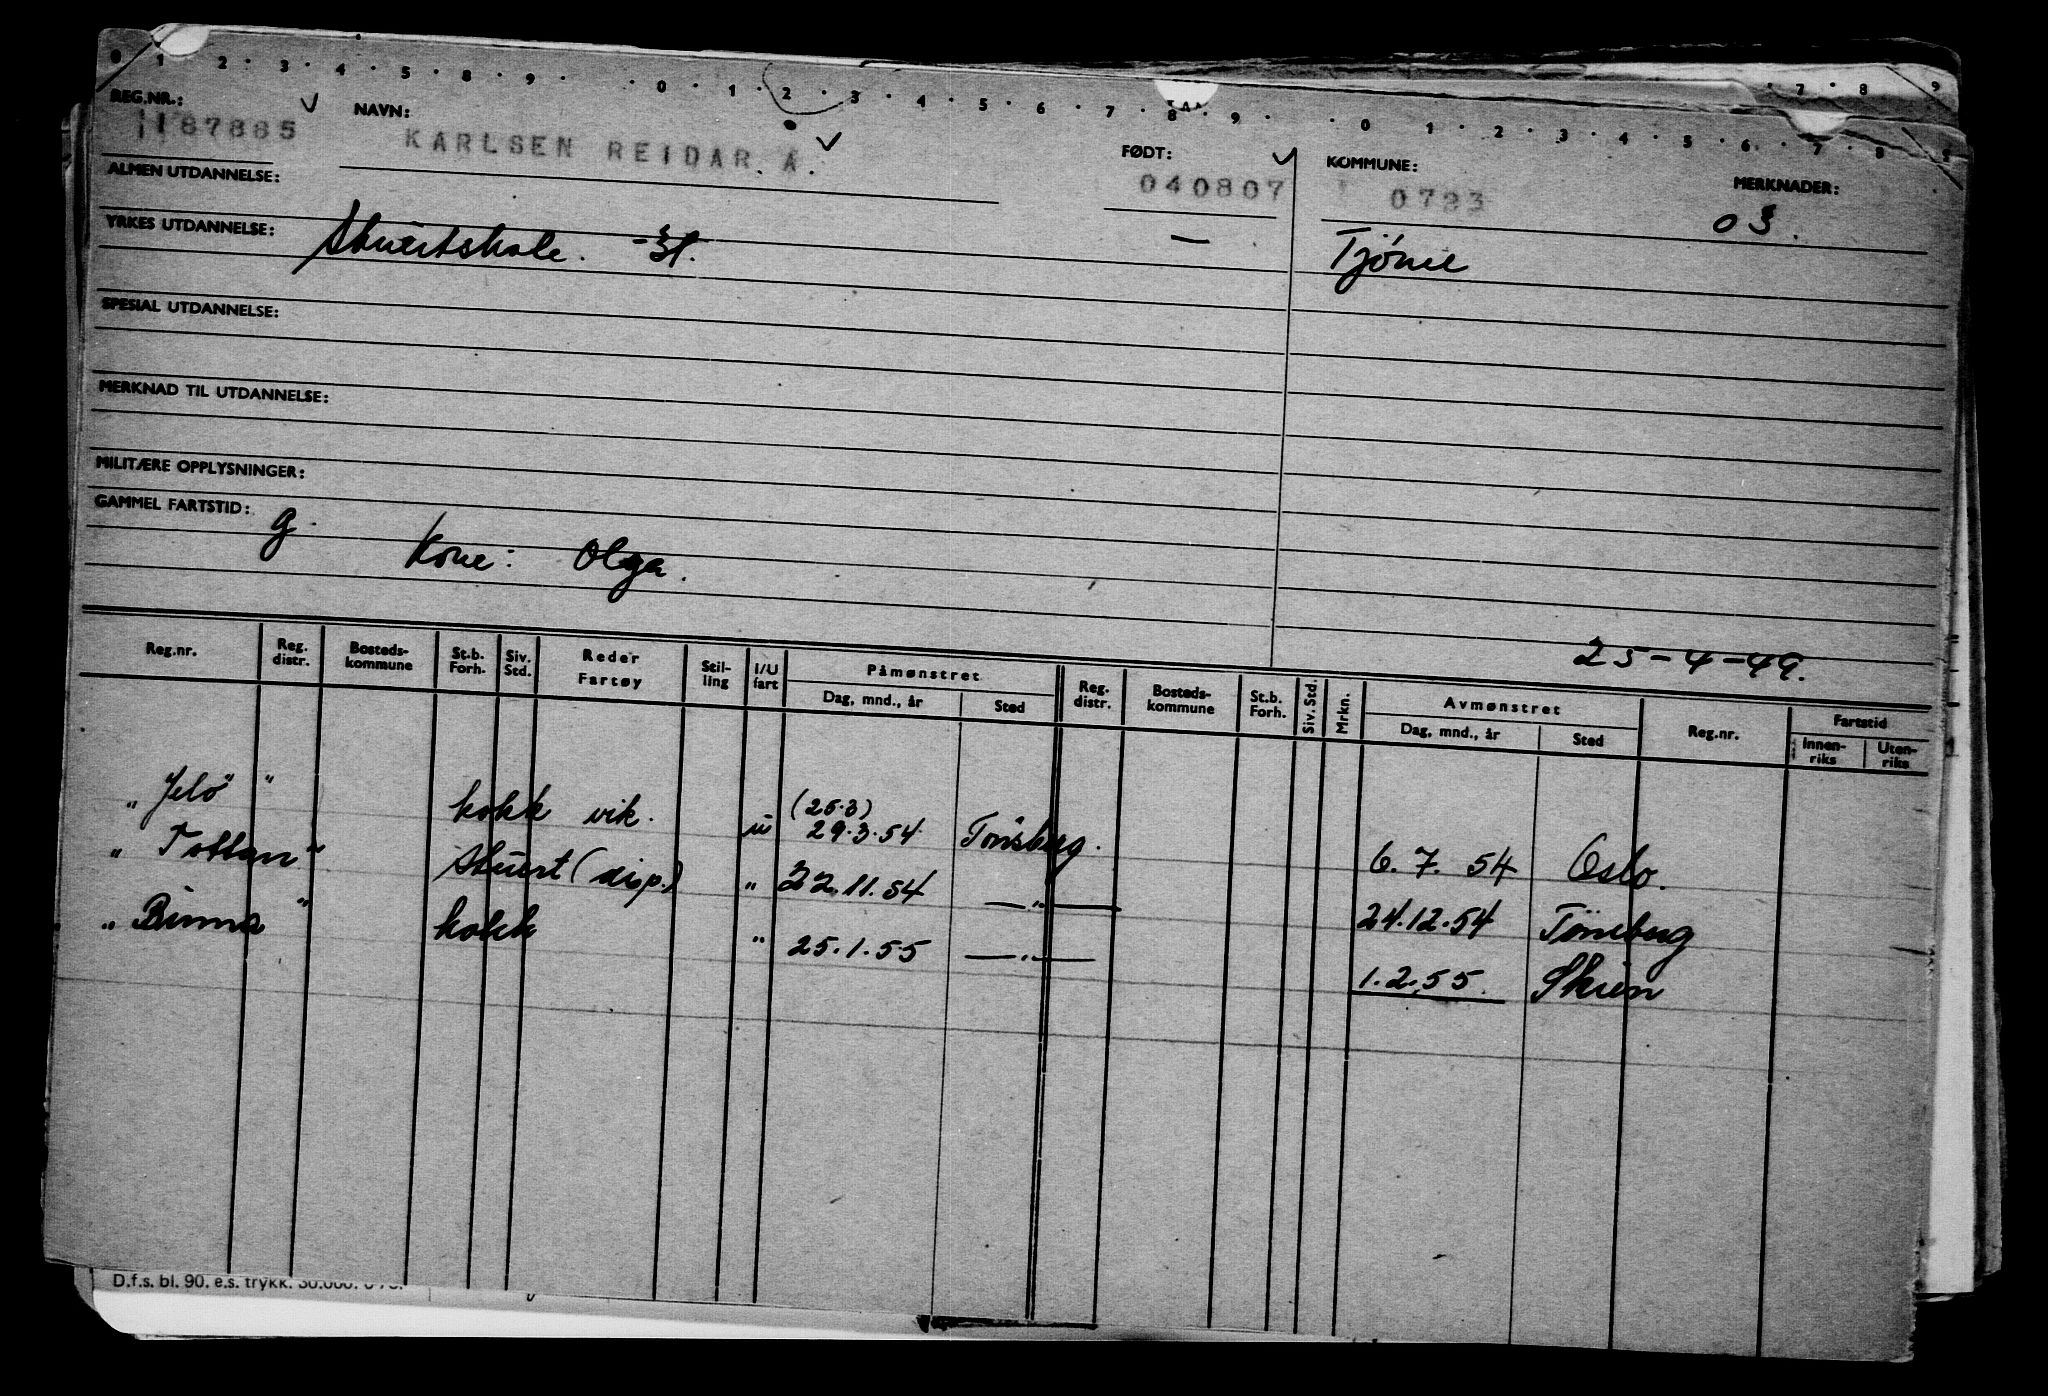 0 1 · 2 · 3 · 4 · 5 · 8 · 9 · · 0 · 1 · 2 · 3 · 4 · 5 · 6 · 7 · 8 · 9 · · 0 1 · 2 · 3 · 4 · 5 · 6 · 7 · 8 · 9
· 7 · 8 9
REG.NR.: NAVN: FØDT: KOMMUNE: MERKNADER:
187885 KARLSEN REIDAR A. 040807 0723 03.
ALMEN UTDANNELSE:
YRKES UTDANNELSE: Stuertskole. — Tjöme
SPESIAL UTDANNELSE:
MERKNAD TIL UTDANNELSE:
MILITÆRE OPPLYSNINGER:
GAMMEL FARTSTID: g. Kone: Olga.
25-4-49.
Reg.nr. Reg. distr. Bosteds-kommune St.b. Forh. Siv. Std. Reder Fartøy Stil-ling I/U fart Påmønstret Reg. distr. Bosteds-kommune St.b. Forh. Siv. Std. Mrkn. Avmønstret Reg.nr. Fartstid
Dag, mnd., år Sted Dag, mnd., år Sted Innen-riks Uten-riks
(26.3)
" Jelö " kokk vik. u 29.3.54 Tönsberg. 6.7.54 Oslo.
" Tottan " Stuert (disp.) " 22.11.54 —"— 24.12.54 Tönsberg
" Binna " kokk " 25.1.55 —"— 1.2.55. Skien
D.f.s. bl. 90. e.s. trykk.